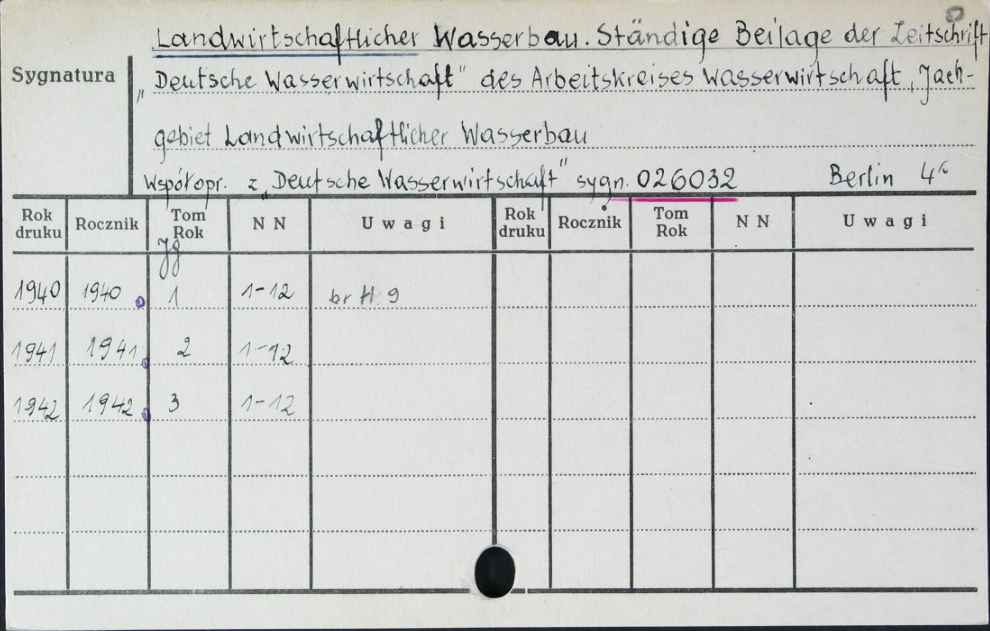 Landwirtschaftlicher Wasserbau. Ständige Beilage der Zeitschrift
Sygnatura
„Deutsche Wasserwirtschaft" des Arbeitskreises Wasserwirtschaft, Fach-
gebiet Landwirtschaftlicher Wasserbau
Współopr. z „Deutsche Wasserwirtschaft" sygn. 026032 Berlin 4°
Rok druku Rocznik Tom Rok N N Uwagi Rok druku Rocznik Tom Rok N N Uwagi
Jg
1940 1940 1 1-12 br H. 9
1941 1941 2 1-12
1942 1942 3 1-12